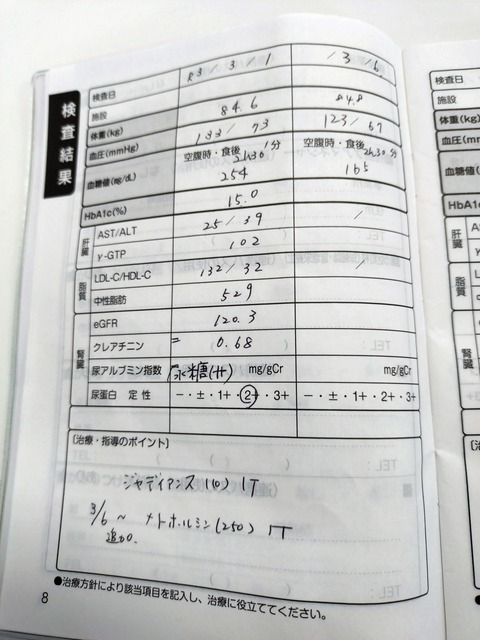 検査結果
検査日 R3/3/1 /3/6
施設
体重(kg) 84.6 84.8
血圧(mmHg) 133/73 123/67
血糖値(mg/dL) 空腹時・食後 2h30分 254 空腹時・食後 2h30分 165
HbA1c(%) 15.0
肝臓 AST/ALT 25/39 /
γ-GTP 102
脂質 LDL-C/HDL-C 132/32 /
中性脂肪 529
腎臓 eGFR 120.3
クレアチニン 0.68
尿アルブミン指数 尿糖(++) mg/gCr mg/gCr
尿蛋白 定性 -・±・1+・2+・3+ -・±・1+・2+・3+
〔治療・指導のポイント〕
ジャディアンス(10) 1T
3/6~ メトホルミン(250) 1T
追加.
●治療方針により該当項目を記入し、治療に役立ててください。
8
検査日
施設
体重(kg)
血圧(mmHg)
血糖値(mg/dL)
HbA1c(%)
肝臓
脂質
腎臓